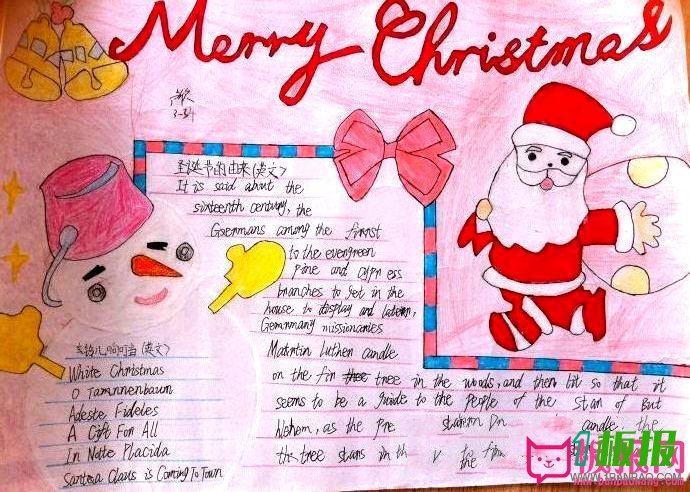 Merry Christmas
3-34
圣诞节的由来(英文)
It is said about the
sixteenth century, the
Gaermans among the finnst
to the evergreen
pine and cypress
branches to get in the
house to display and latern,
Gemnmany missionaries
Matntin Luthen candle
on the fin the tree in the woods, and then lit so that it
seems to be a guide to the people of the Stan of But
lehem, as the pre candle. the
the tree stans in th to the
铃儿响叮当(英文)
White Christmas
O Tamnnenbaum
Adeste Fideles
A Gift For All
In Note Placida
Santosa Claus is Coming To Town
板报
WWW.1BANBAO.COM